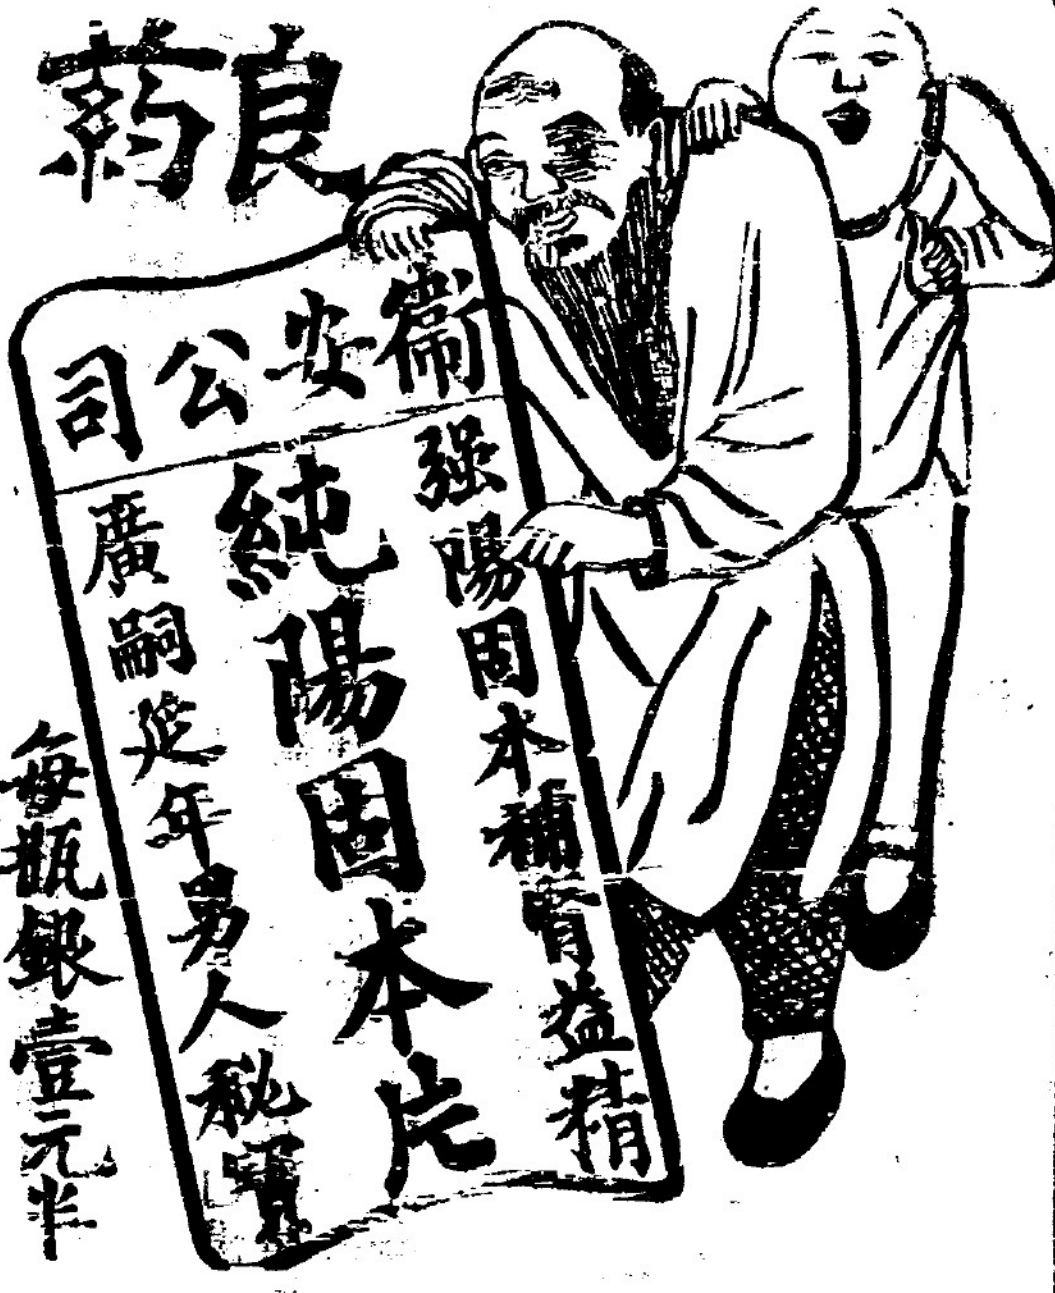 良药
衞安公司
强陽固本補腎益精
純陽固本片
廣嗣延年男人秘寳
每瓶銀壹元半